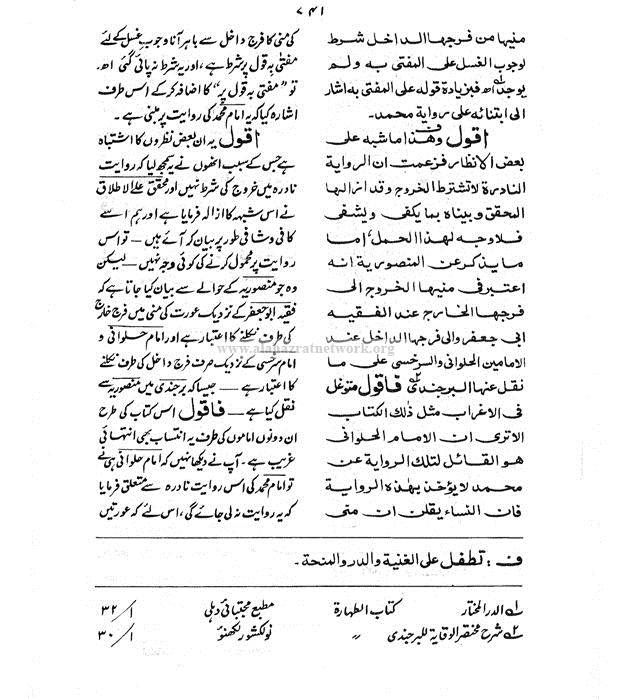 ۷۴۱
منیھا من فرجھا الداخل شرط
لوجوب الغسل علی المفتی بہ ولم
یوجد اھ فبزیادۃ قولہ علی المفتی بہ اشار
الی ابتنائہ علی روایۃ محمد۔
اقول وھذا ما شبہ علی
بعض الانظار فزعمت ان الروایۃ
النادرۃ لاتشترط الخروج وقد ازالہا
المحقق وبیناہ بما یکفی ویشفی
فلاوجہ لھذا الحمل، اما
ما یذکر عن المنصوریۃ انہ
اعتبر فی منیھا الخروج الی
فرجہا الخارج عند الفقیہ
ابی جعفر والی فرجہا الداخل عند
الامامین الحلوانی والسرخسی علی ما
نقل عنہا البرجندی فاقول متوغل
فی الاغراب مثل ذلک الکتاب
الاتری ان الامام الحلوانی
ھو القائل لتلک الروایۃ عن
محمد لایؤخذ بھذہ الروایۃ
فان النساء یقلن ان منی
کی منی کا فرج داخل سے باہر آنا وجوبِ غسل کے لئے
مفتٰی بہ قول پر شرط ہے، اور یہ شرط نہ پائی گئی اھ۔
تو "مفتی بہ قول پر" کا اضافہ کرکے اس طرف
اشارہ کیا کہ یہ امام محمد کی روایت پر مبنی ہے۔
اقول یہ ان بعض نظروں کا اشتباہ
ہے جس کے سبب انھوں نے یہ سمجھ لیا کہ روایت
نادرہ میں خروج کی شرط نہیں اور محقق علی الاطلاق
نے اس شبہہ کا ازالہ فرمایا ہے اور ہم اسے
کافی و شافی طور پر بیان کر آئے ہیں — تو اس
روایت پر محمول کرنے کی کوئی وجہ نہیں — لیکن
وہ جو منصوریہ کے حوالے سے بیان کیا جاتا ہے کہ
فقیہ ابو جعفر کے نزدیک عورت کی منی میں فرج خارج
کی طرف نکلنے کا اعتبار ہے اور امام حلوانی و
امام سرخسی کے نزدیک صرف فرج داخل کی طرف نکلنے
کا اعتبار ہے — جیسا کہ برجندی میں منصوریہ سے
نقل کیا ہے — فاقول اس کتاب کی طرح
ان دونوں اماموں کی طرف یہ انتساب بھی انتہائی
غریب ہے۔ آپ نے دیکھا نہیں کہ امام حلوانی ہی نے
تو امام محمد کی اس روایت نادرہ سے متعلق فرمایا
کہ یہ روایت نہ لی جائے گی، اس لئے کہ عورتیں
www.alahazratnetwork.org
ف : تطفل علی الغنیۃ والدر والمنحۃ۔
۱؎ الدرالمختار کتاب الطہارۃ مطبع مجتبائی دہلی ۱/۳۲
۲؎ شرح مختصر الوقایۃ للبرجندی " نولکشور لکھنؤ ۱/۳۰